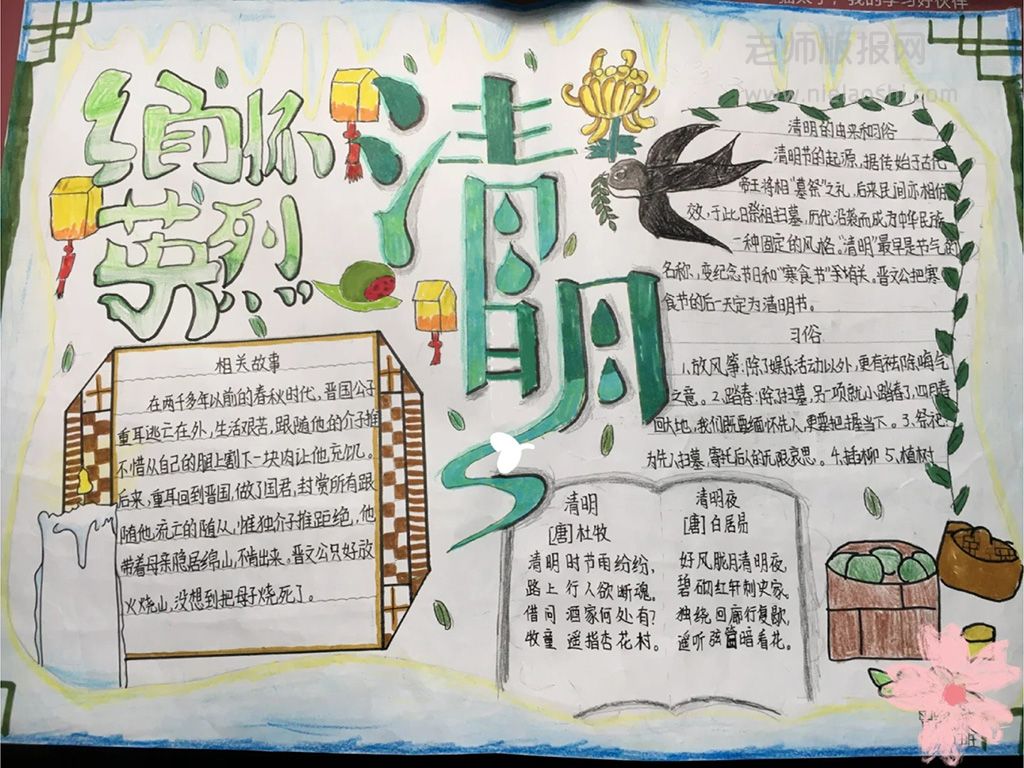 老师板报网
缅怀
英烈
清明
清明的由来和习俗
清明节的起源,据传始于古代
帝王将相"墓祭"之礼,后来民间亦相仿
效,于此日祭祖扫墓,历代沿袭而成为中华民族
一种固定的风格。"清明"最早是节气的
名称,变纪念节日和"寒食节"于有关。晋文公把寒
食节的后一天定为清明节。
习俗
1.放风筝:除了娱乐活动以外,更有祛除晦气
之意。2.踏春:除扫墓,另一项就小踏春了,四月春
回大地,我们既要缅怀先人,更要把握当下。3.祭祀:
为先人扫墓,寄托后人的无限哀思。4.插柳 5.植树
相关故事
在两千多年以前的春秋时代,晋国公子
重耳逃亡在外,生活艰苦,跟随他的介子推
不惜从自己的腿上割下一块肉让他充饥。
后来,重耳回到晋国,做了国君,封赏所有跟
随他流亡的随从,惟独介子推距绝,他
带着母亲隐居绵山,不肯出来。晋文公只好放
火烧山,没想到把母子烧死了。
清明
[唐]杜牧
清明时节雨纷纷,
路上行人欲断魂。
借问酒家何处有?
牧童遥指杏花村。
清明夜
[唐]白居易
好风胧月清明夜,
碧砌红轩刺史家。
独绕回廊行复歇,
遥听弦管暗看花。